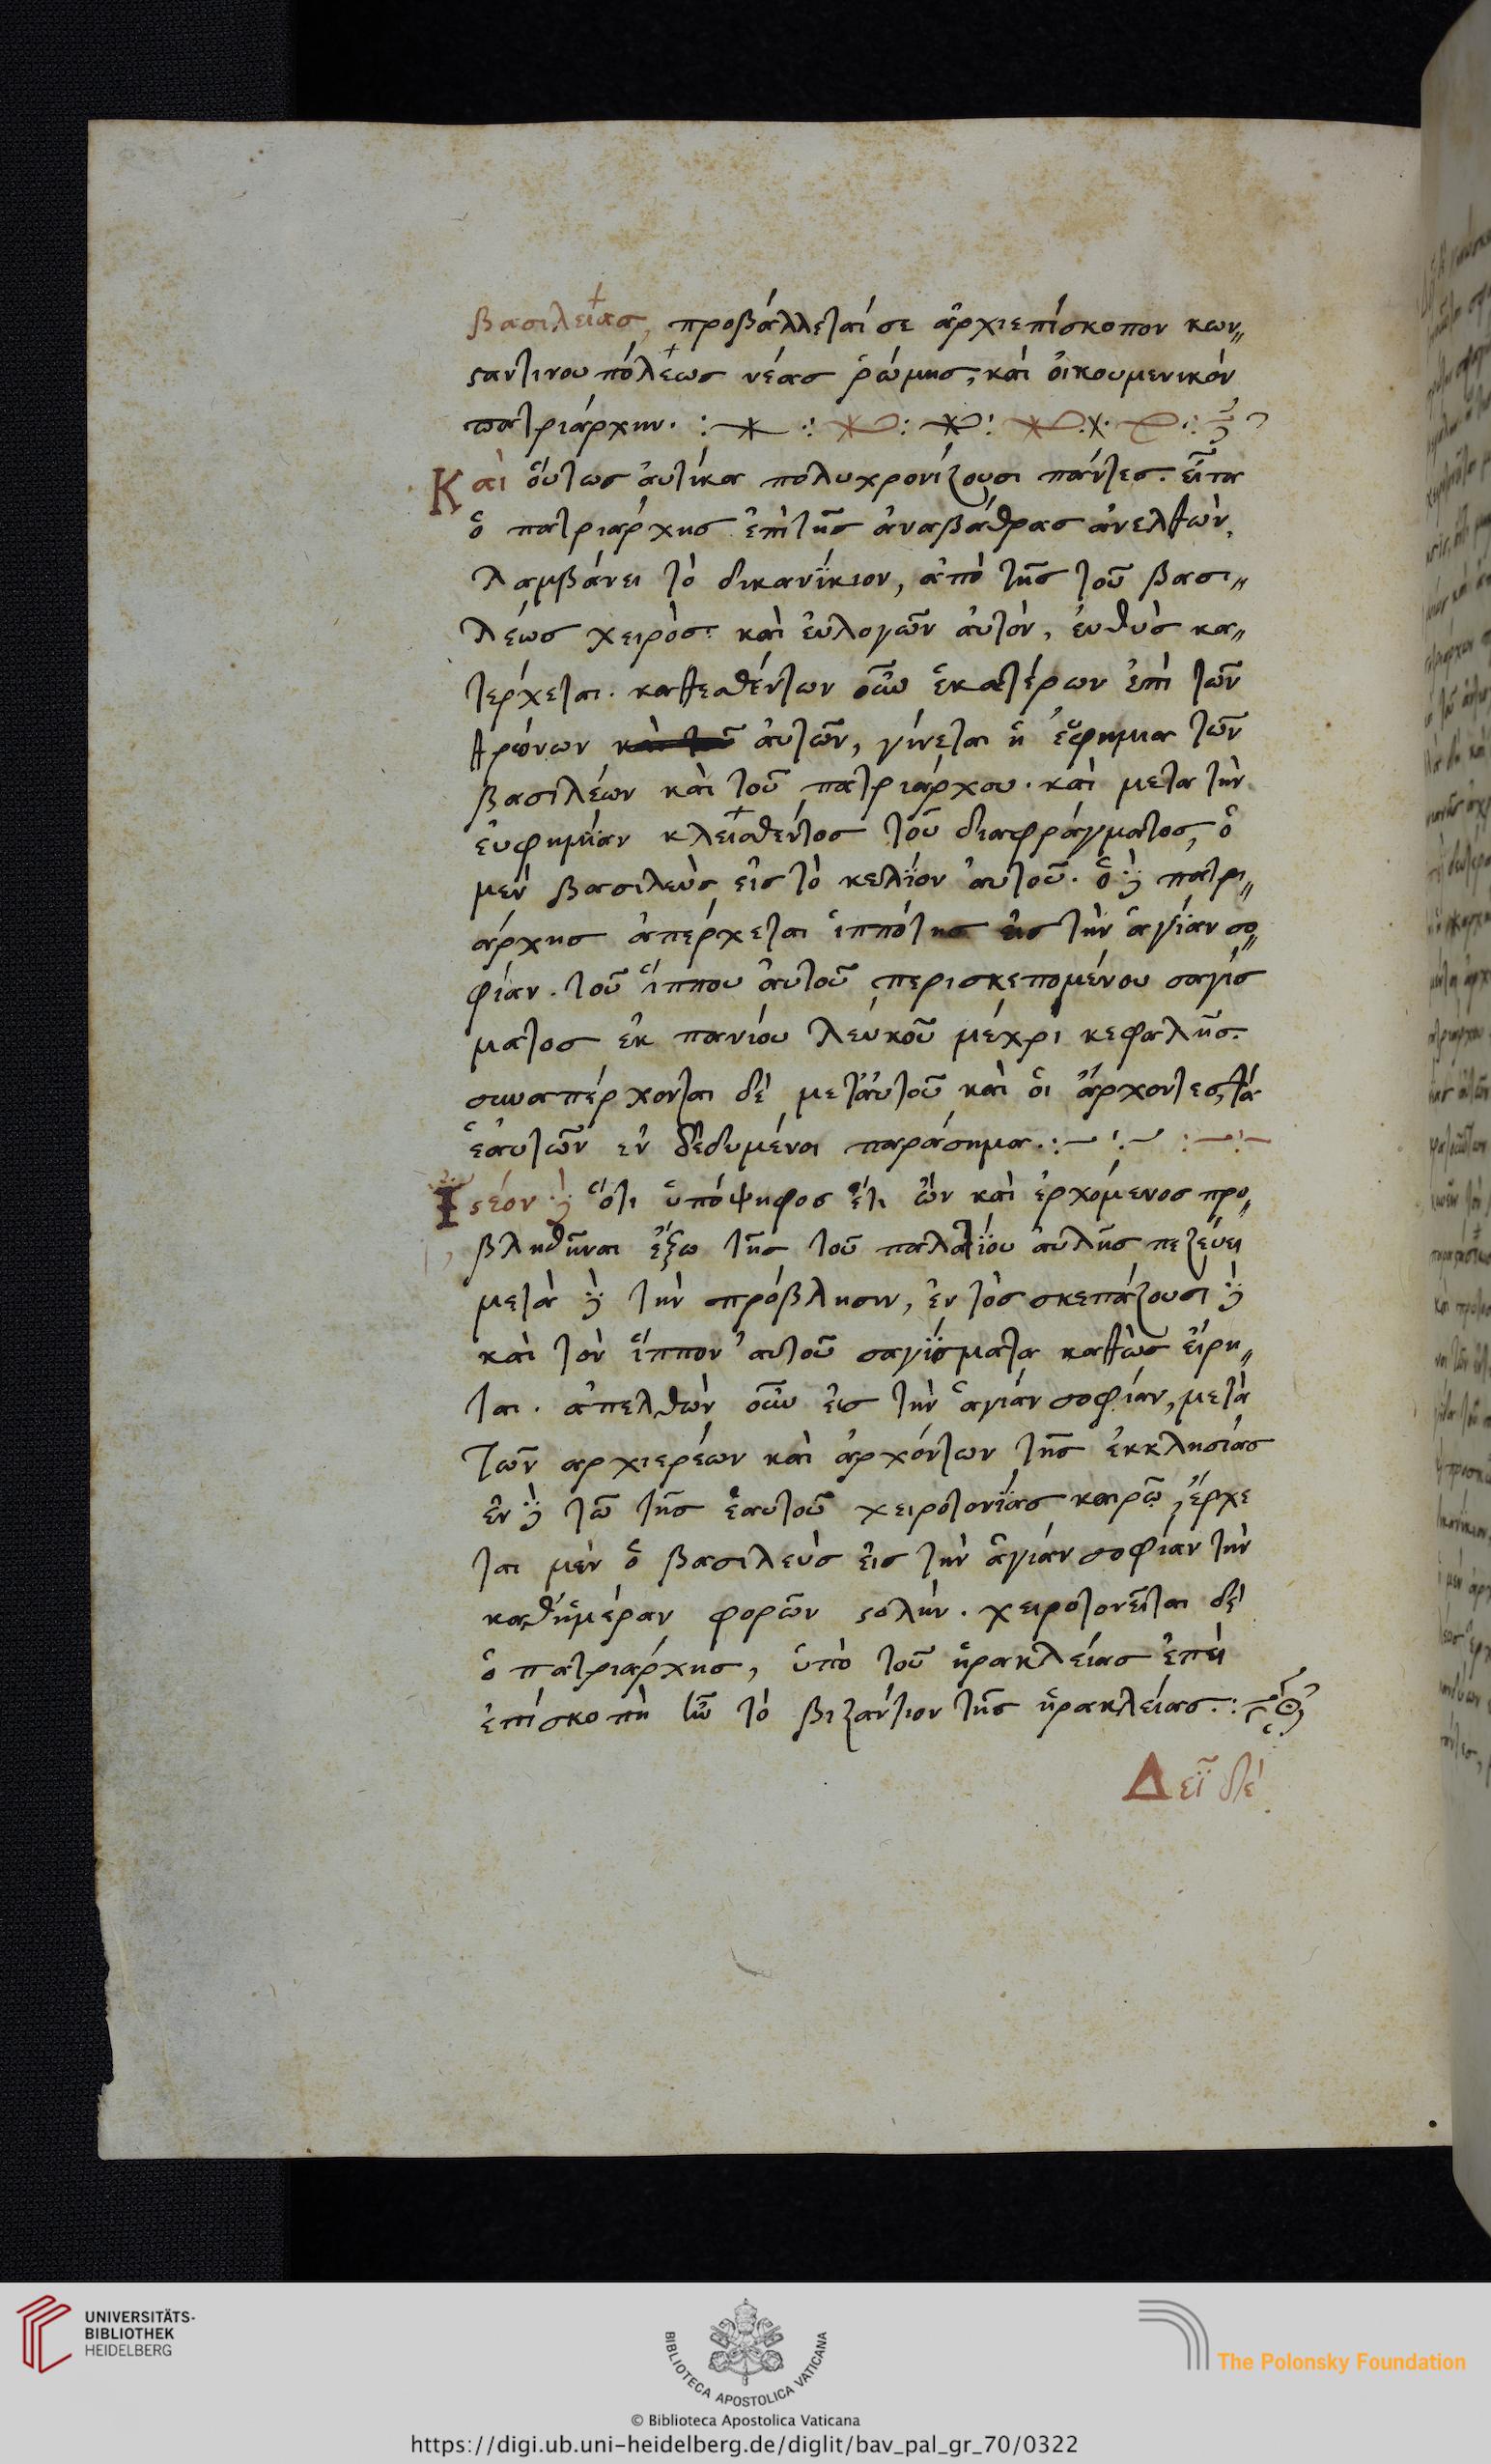 βασιλείας, προβάλλεταί σε ἀρχιεπίσκοπον κων〃
σταντινουπόλεως νέας ῥώμης, καὶ οἰκουμενικὸν
πατριάρχην.
Καὶ οὕτως αὐτίκα πολυχρονίζουσι πάντες. εἶτα
ὁ πατριάρχης ἐπὶ τῆς ἀναβάθρας ἀνελθών,
λαμβάνει τὸ δικανΐκιον, ἀπὸ τῆς τοῦ βασι〃
λέως χειρός· καὶ εὐλογῶν αὐτόν, εὐθὺς κα〃
τέρχεται. καθεσθέντων οὖν ἑκατέρων ἐπὶ τῶν
θρόνων αὐτῶν, γίνεται ἡ εὐφημια τῶν
βασιλέων καὶ τοῦ πατριάρχου. καὶ μετα τὴν
εὐφημΐαν κλεισθέντος τοῦ διαφράγματος, ὁ
μὲν βασιλεὺς εἰς τὸ κελΐον αὐτοῦ. ὁ δὲ πατρι〃
άρχης ἀπέρχεται ἱππότης εἰς τὴν ἁγίαν σο〃
φίαν. τοῦ ἵππου αὐτοῦ περισκεπομένου σαγίσ
ματος ἐκ πανίου λευκοῦ μέχρι κεφαλῆς.
συναπέρχονται δὲ μετ' αὐτοῦ καὶ οἱ ἄρχοντες, τὰ
ἑαυτῶν ἐν δεδυμένοι παράσημα.
Ἰστέον δὲ ὅτι ὑπόψηφος ἔτι ὢν καὶ ἐρχόμενος προ〃
βληθῆναι ἔξω τῆς τοῦ παλατΐου αὐλῆς πεζεύει
μετὰ δὲ τὴν πρόβλησιν, ἐν τὸς σκεπάζουσι δὲ
καὶ τὸν ἵππον αὐτοῦ σαγΐσματα καθὼς εἴρη〃
ται. ἀπελθὼν οὖν εἰς τὴν ἁγίαν σοφίαν, μετὰ
τῶν αρχιερέων καὶ ἀρχόντων τῆς ἐκκλησίας
ἐν δὲ τῶ τῆς ἑαυτοῦ χειροτονΐας καιρῶ, ἔρχε
ται μὲν ὁ βασιλεὺς εἰς τὴν ἁγίαν σοφίαν τὴν
καθ' ἡμέραν φορῶν στολήν. χειροτονεῖται δὲ
ὁ πατριάρχης, ὑπὸ τοῦ ἡρακλείας ἐπεὶ
ἐπίσκοπὴ ἦν τὸ βιζάντιον τῆς ἡρακλείας.
Δεῖ δὲ
UNIVERSITÄTS-
BIBLIOTHEK
HEIDELBERG
BIBLIOTECA APOSTOLICA VATICANA
The Polonsky Foundation
© Biblioteca Apostolica Vaticana
https://digi.ub.uni-heidelberg.de/diglit/bav_pal_gr_70/0322